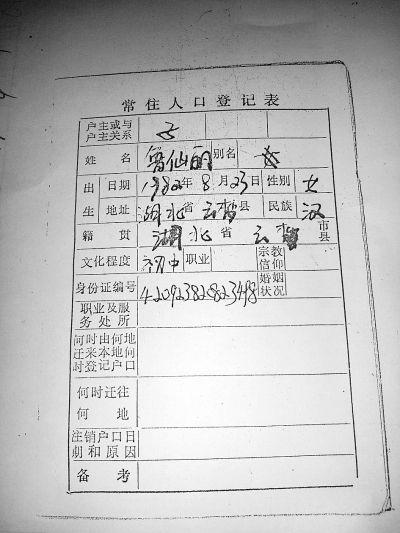 常住人口登记表
户主或与户主关系 子
姓名 曾仙丽 别名
出生 日期 1982年8月23日 性别 女
地址 湖北省云梦县 民族 汉
籍贯 湖北省云梦市县
文化程度 初中 职业 宗教信仰
身份证编号 420923820823498 婚姻状况
职业及服务处所
何时由何地迁来本地何时登记户口
何时迁往何地
注销户口日期和原因
备考